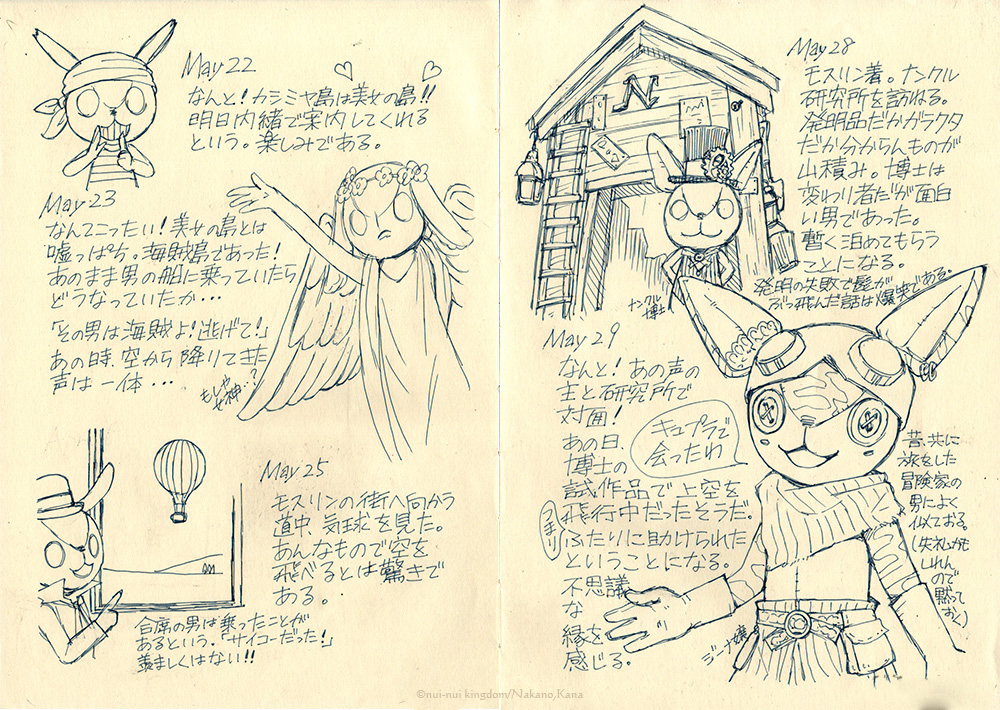 May 22
なんと！カシミヤ島は美女の島!!
明日内緒で案内してくれる
という。楽しみである。
May 23
なんてこったい！美女の島とは
嘘っぱち。海賊島であった！
あのまま男の船に乗っていたら
どうなっていたか…
「その男は海賊よ！逃げて！」
あの時、空から降りてきた
声は一体…
もしや
女神…？
May 25
モスリンの街へ向かう
道中、気球を見た。
あんなもので空を
飛べるとは驚きで
ある。
合席の男は乗ったことが
あるという。「サイコーだった！」
羨ましくはない!!
May 28
モスリン着。ナンクル
研究所を訪ねる。
発明品だかガラクタ
だか分からんものが
山積み。博士は
変わり者だが面白
い男であった。
暫く泊めてもらう
ことになる。
発明の失敗で髪が
ぶっ飛んだ話は爆笑である。
N
ナンクル
博士
May 29
なんと！あの声の
主と研究所で
対面！
あの日、
博士の
試作品で上空を
飛行中だったそうだ。
つまり
ふたりに助けられた
ということになる。
不思議
な
縁を
感じる。
キュプラで
会ったわ
昔、共に
旅をした
冒険家の
男によく
似ておる。
(失礼かも
しれん
ので
黙って
おく)
ジーナ嬢
©nui-nui kingdom/Nakano,Kana